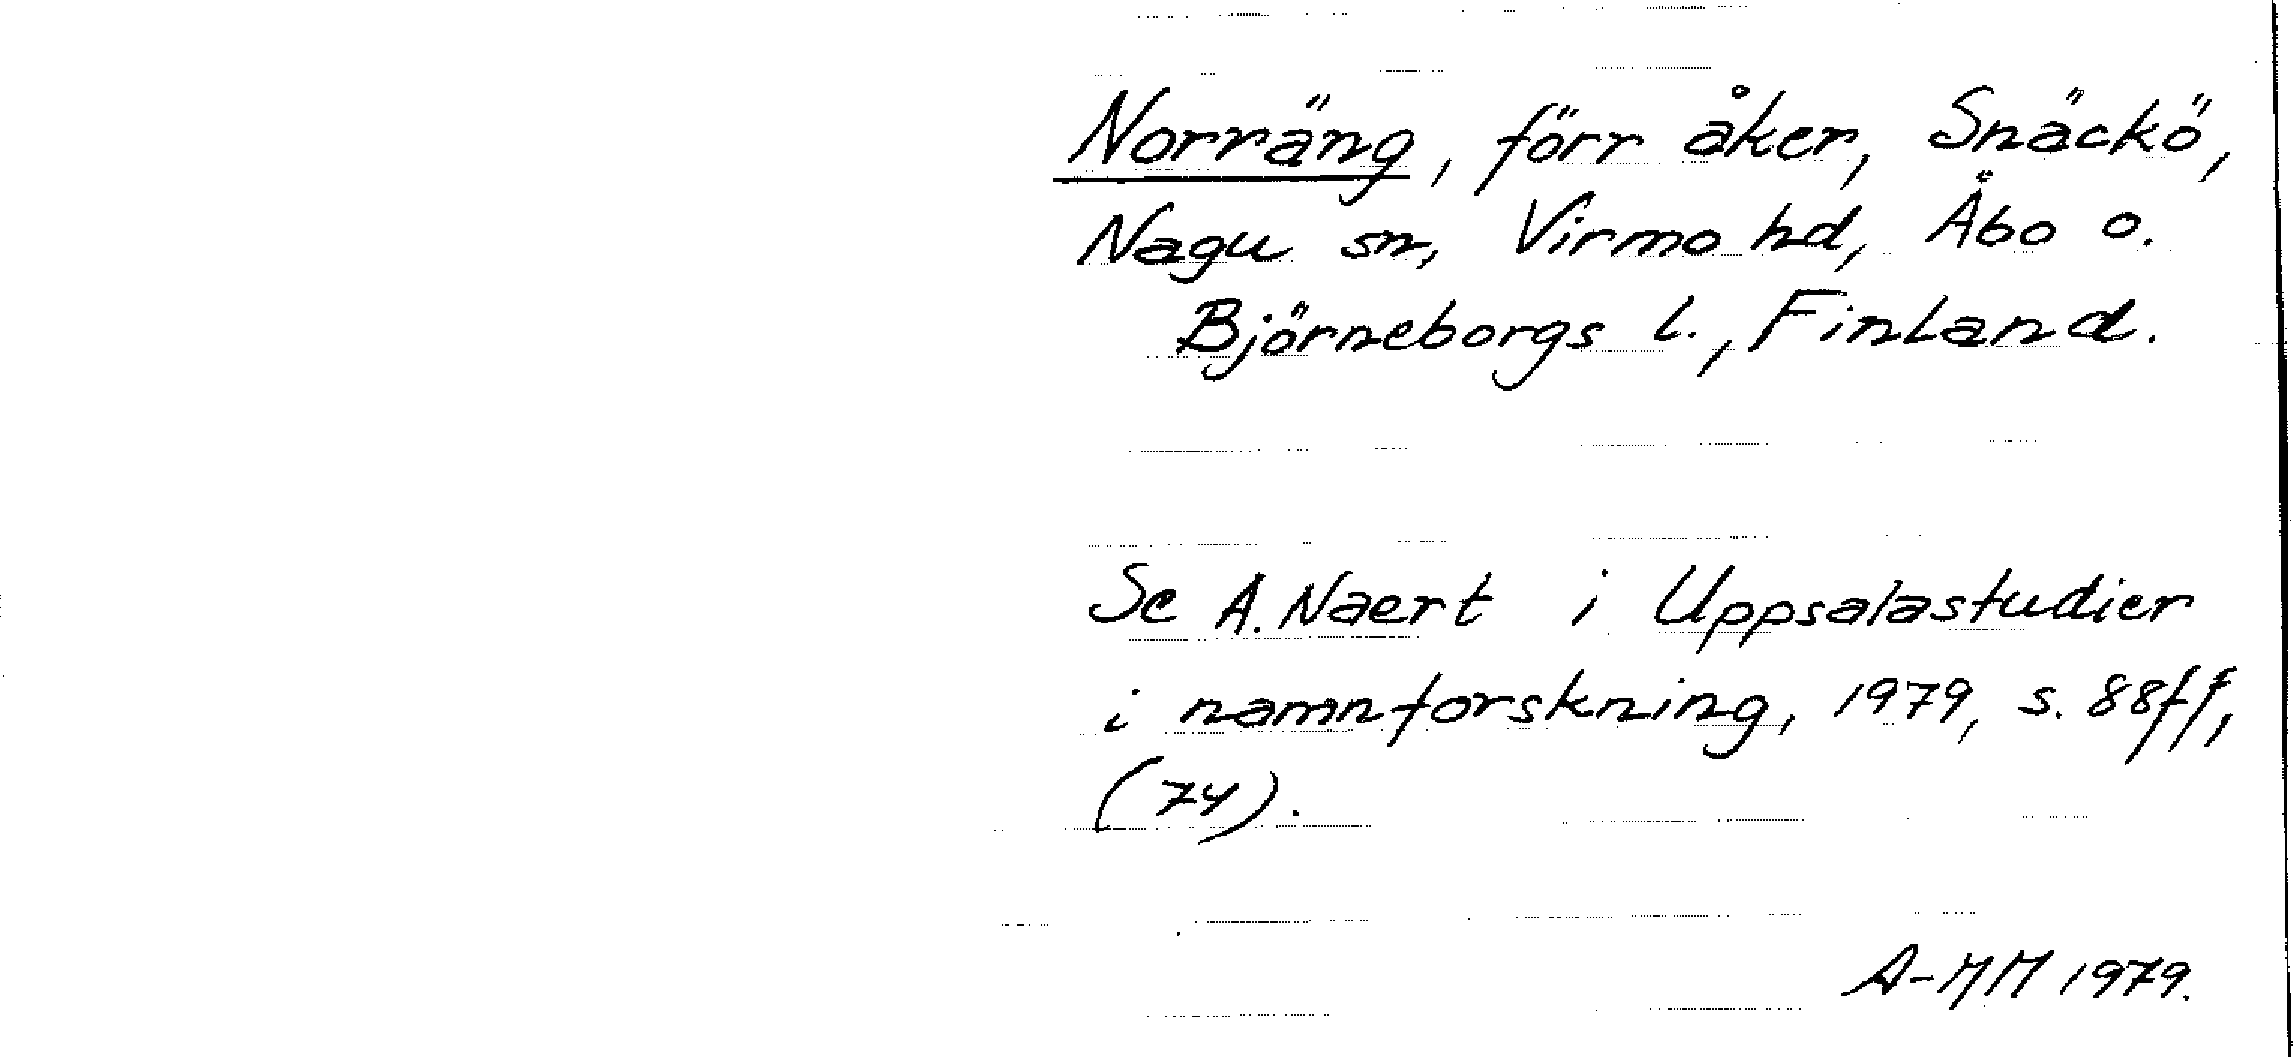 Norräng, förr åker, Snäckö,
Nagu sn, Virmo hd, Åbo o.
Björneborgs l., Finland.
Se A. Naert i Uppsalastudier
i namnforskning, 1979, s. 88ff,
(74).
A-MM 1979.